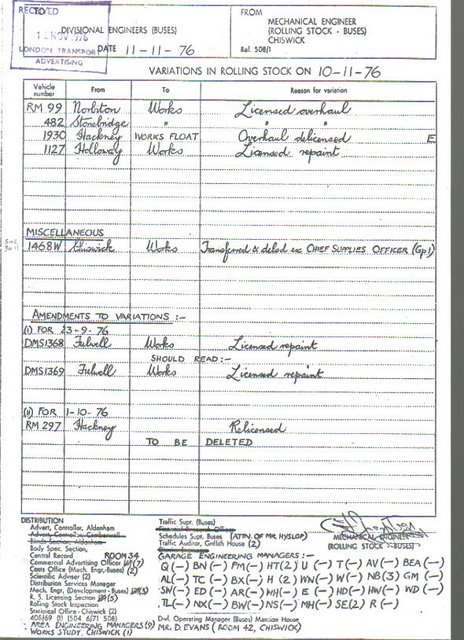 RECEIVED
12 NOV 1976
LONDON TRANSPORT
ADVERTISING
TO
DIVISIONAL ENGINEERS (BUSES)
DATE 11-11-76
FROM
MECHANICAL ENGINEER
(ROLLING STOCK - BUSES)
CHISWICK
Ref. 508/1
VARIATIONS IN ROLLING STOCK ON 10-11-76
Vehicle number From To Reason for variation
RM 99 Norbiton Works Licensed overhaul
482 Stonebridge " " "
1930 Hackney WORKS FLOAT Overhaul delicensed E
1127 Holloway Works Licensed repaint
MISCELLANEOUS
1468W Chiswick Works Transferred & deled ex CHIEF SUPPLIES OFFICER (Gp 1)
AMENDMENTS TO VARIATIONS :-
(i) FOR 23-9-76
DMS1368 Fulwell Works Licensed repaint
SHOULD READ :-
DMS1369 Fulwell Works Licensed repaint
(ii) FOR 1-10-76
RM 297 Hackney Relicensed
TO BE DELETED
DISTRIBUTION
Advert. Controller, Aldenham
Advert. Controller, Camberwell
Body Spec. Section,
Central Record ROOM 34
Commercial Advertising Officer (7)
Costs Office (Mech. Engr, Buses) (2)
Scientific Adviser (2)
Distribution Services Manager
Mech. Engr, (Development - Buses) (3)
R. S. Licensing Section (5)
Rolling Stock Inspection
Statistical Office - Chiswick (2)
AREA ENGINEERING MANAGERS (9)
WORKS STUDY, CHISWICK (1)
Traffic Supt. (Buses)
Schedules Supt. Buses (ATTN OF MR HYSLOP)
Traffic Auditor, Griffith House (2)
GARAGE ENGINEERING MANAGERS :-
Q (-) BN (-) PM (-) HT (2) U (-) T (-) AV (-) BEA (-)
AL (-) TC (-) BX (-) H (2) WN (-) W (-) NB (3) GM (-)
SN (-) ED (-) AR (-) WH (-) E (-) HD (-) HW (-) WD (-)
TL (-) NX (-) BW (-) NS (-) MH (-) SE (2) R (-)
Dvl. Operating Manager (Buses) Marcion House
MR. D. EVANS (ROOM 42, CHISWICK)
MECHANICAL ENGINEER
(ROLLING STOCK - BUSES)